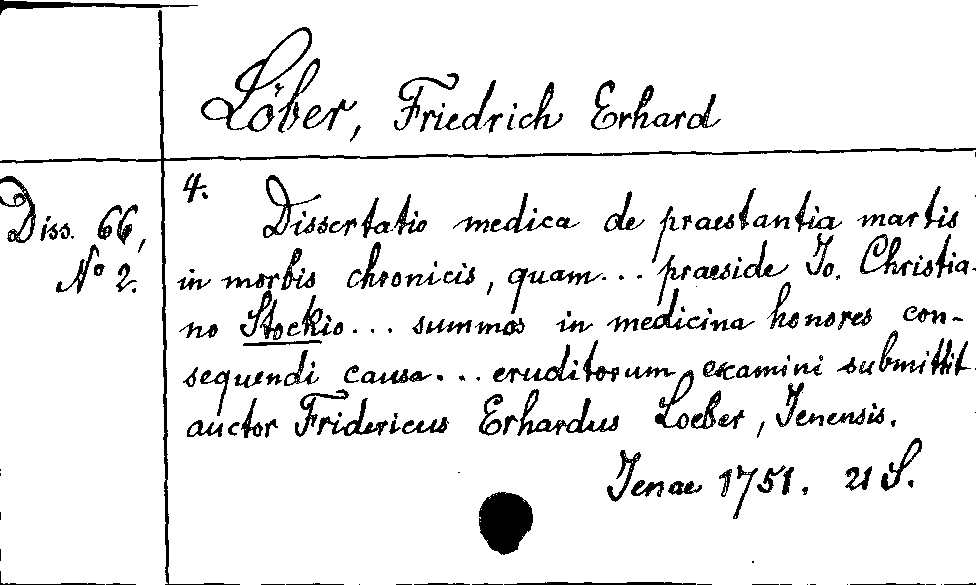 Löber, Friedrich Erhard
Diss. 66,
No 2.
4.
Dissertatio medica de praestantia martis
in morbis chronicis, quam... praeside Jo. Christia-
no Stockio... summos in medicina honores con-
sequendi causa... eruditorum examini submittit
auctor Fridericus Erhardus Loeber, Jenensis.
Jenae 1751. 21 S.